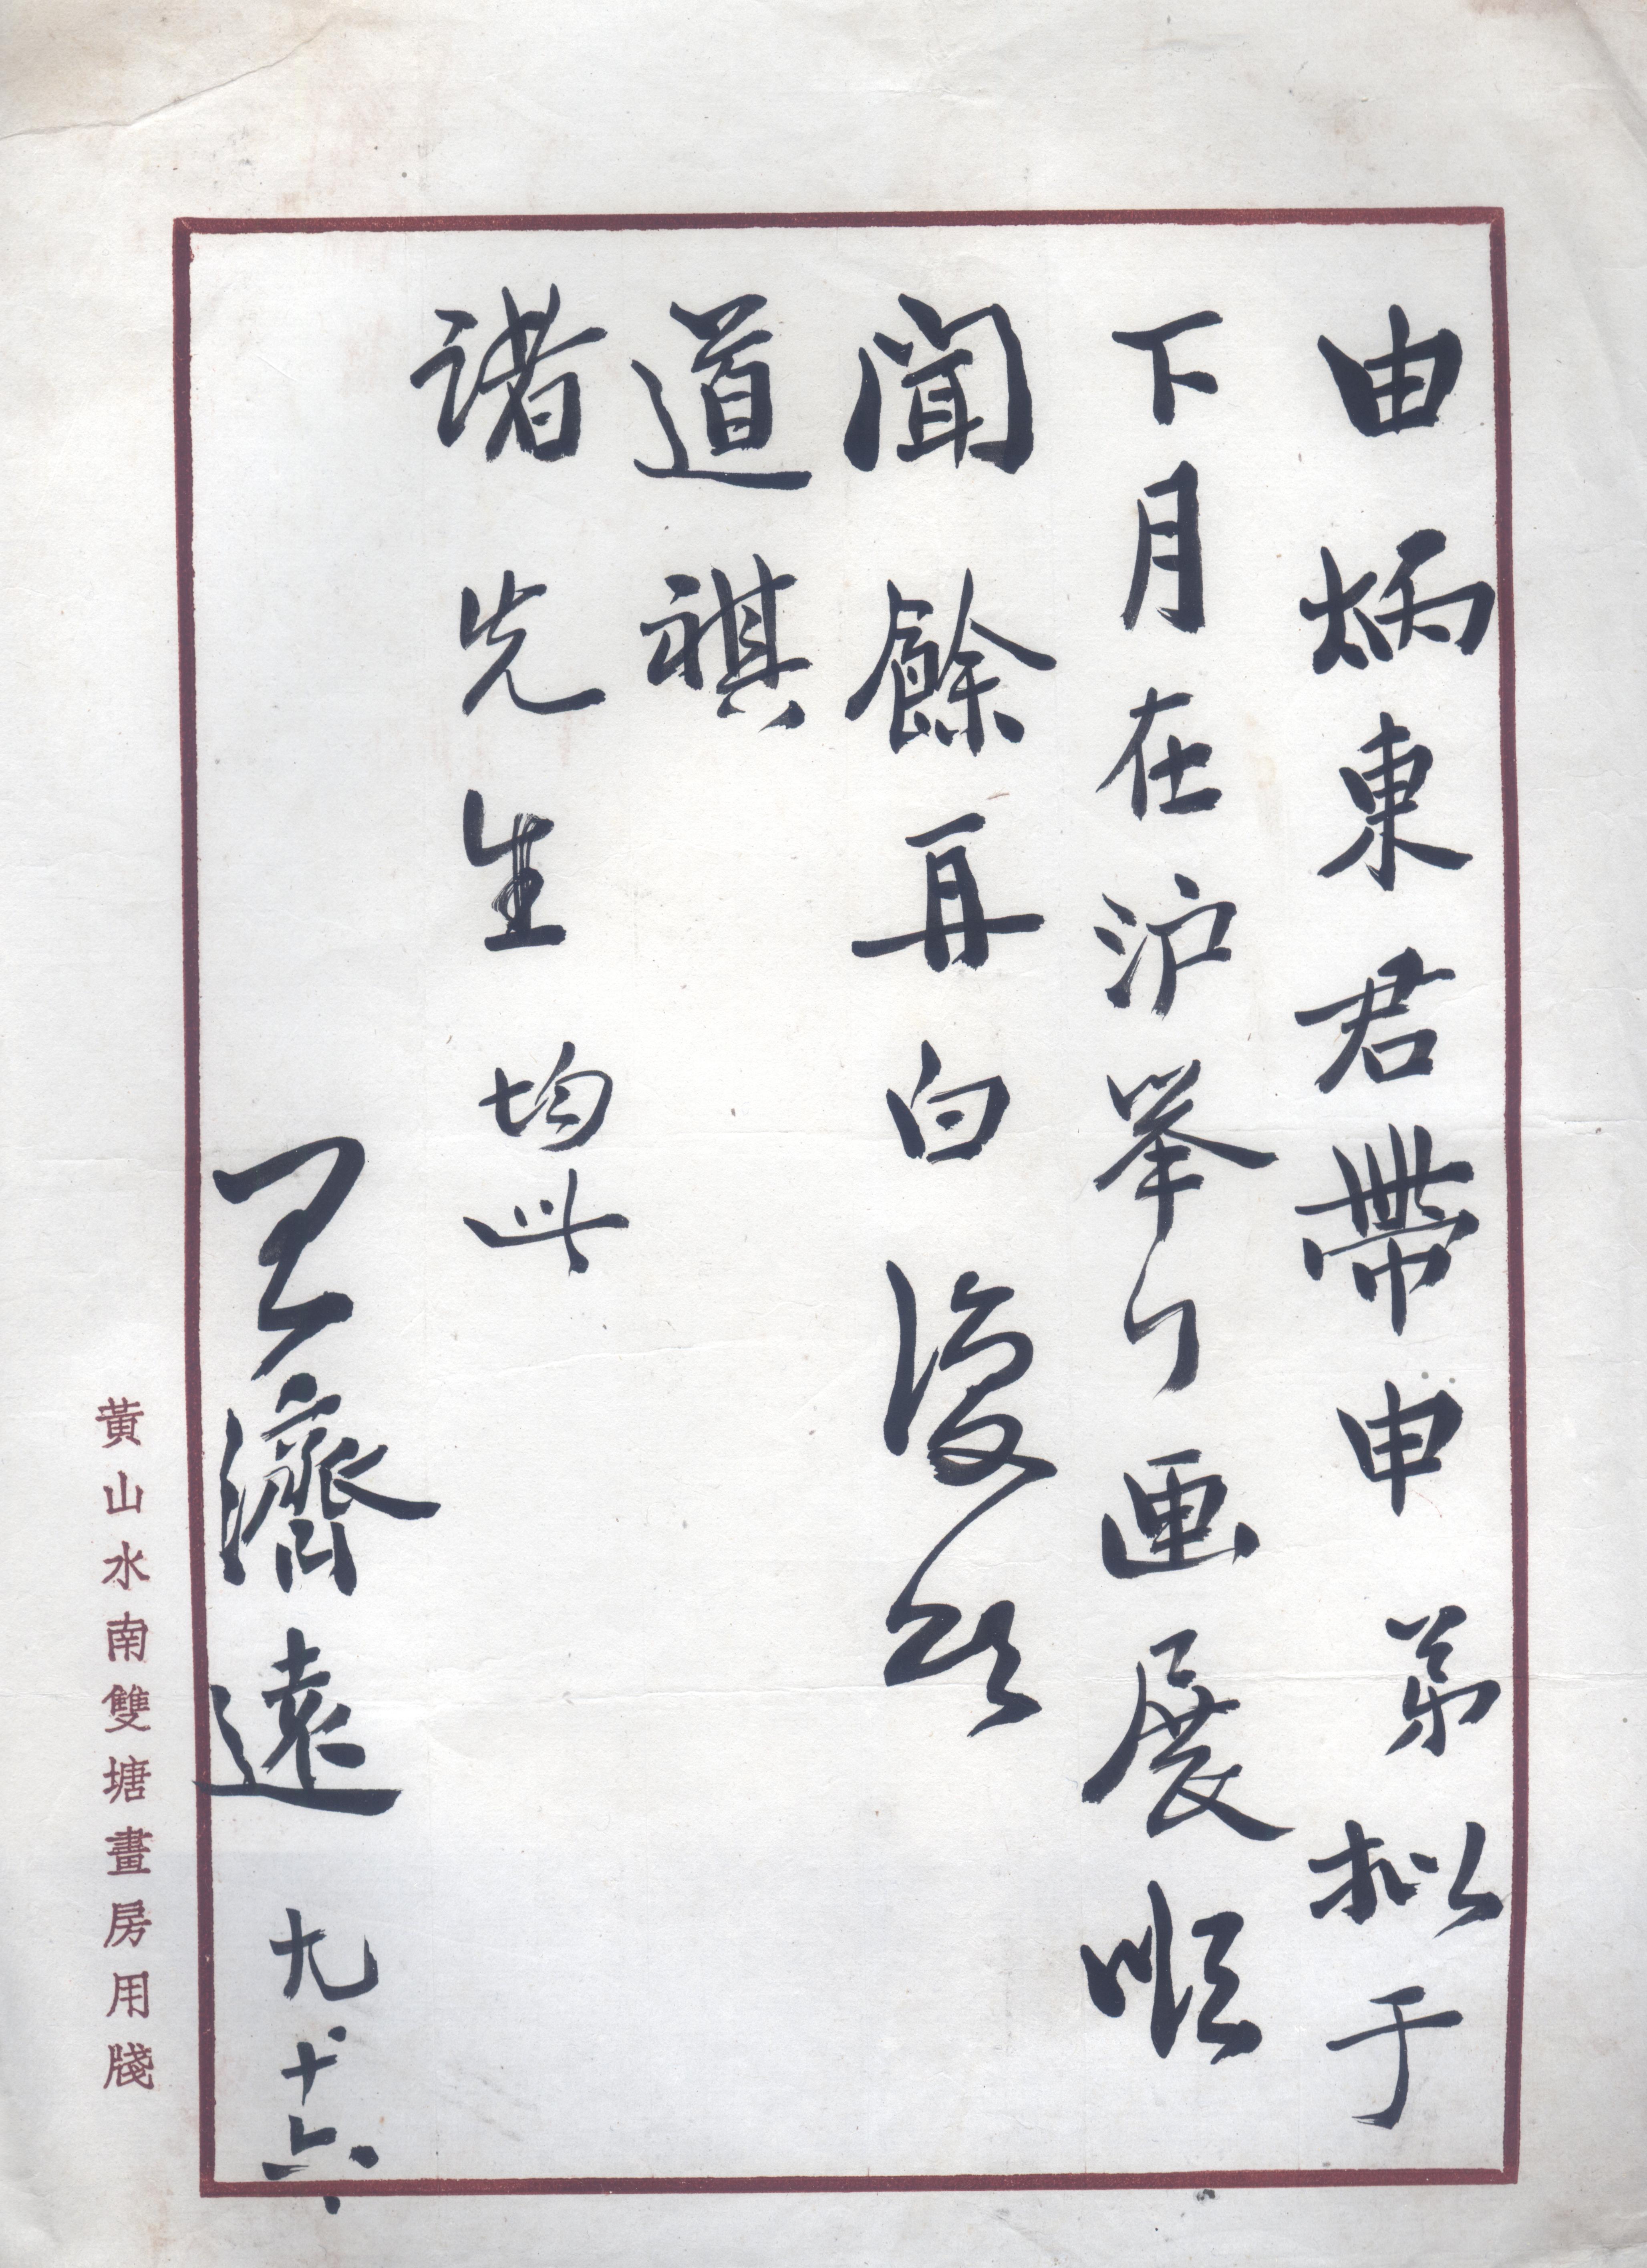 由炳東君帶申弟拟于
下月在沪举行画展順
聞餘再白復頌
道祺
诸先生均此
王濟遠 九.十六.
黃山水南雙塘畫房用牋